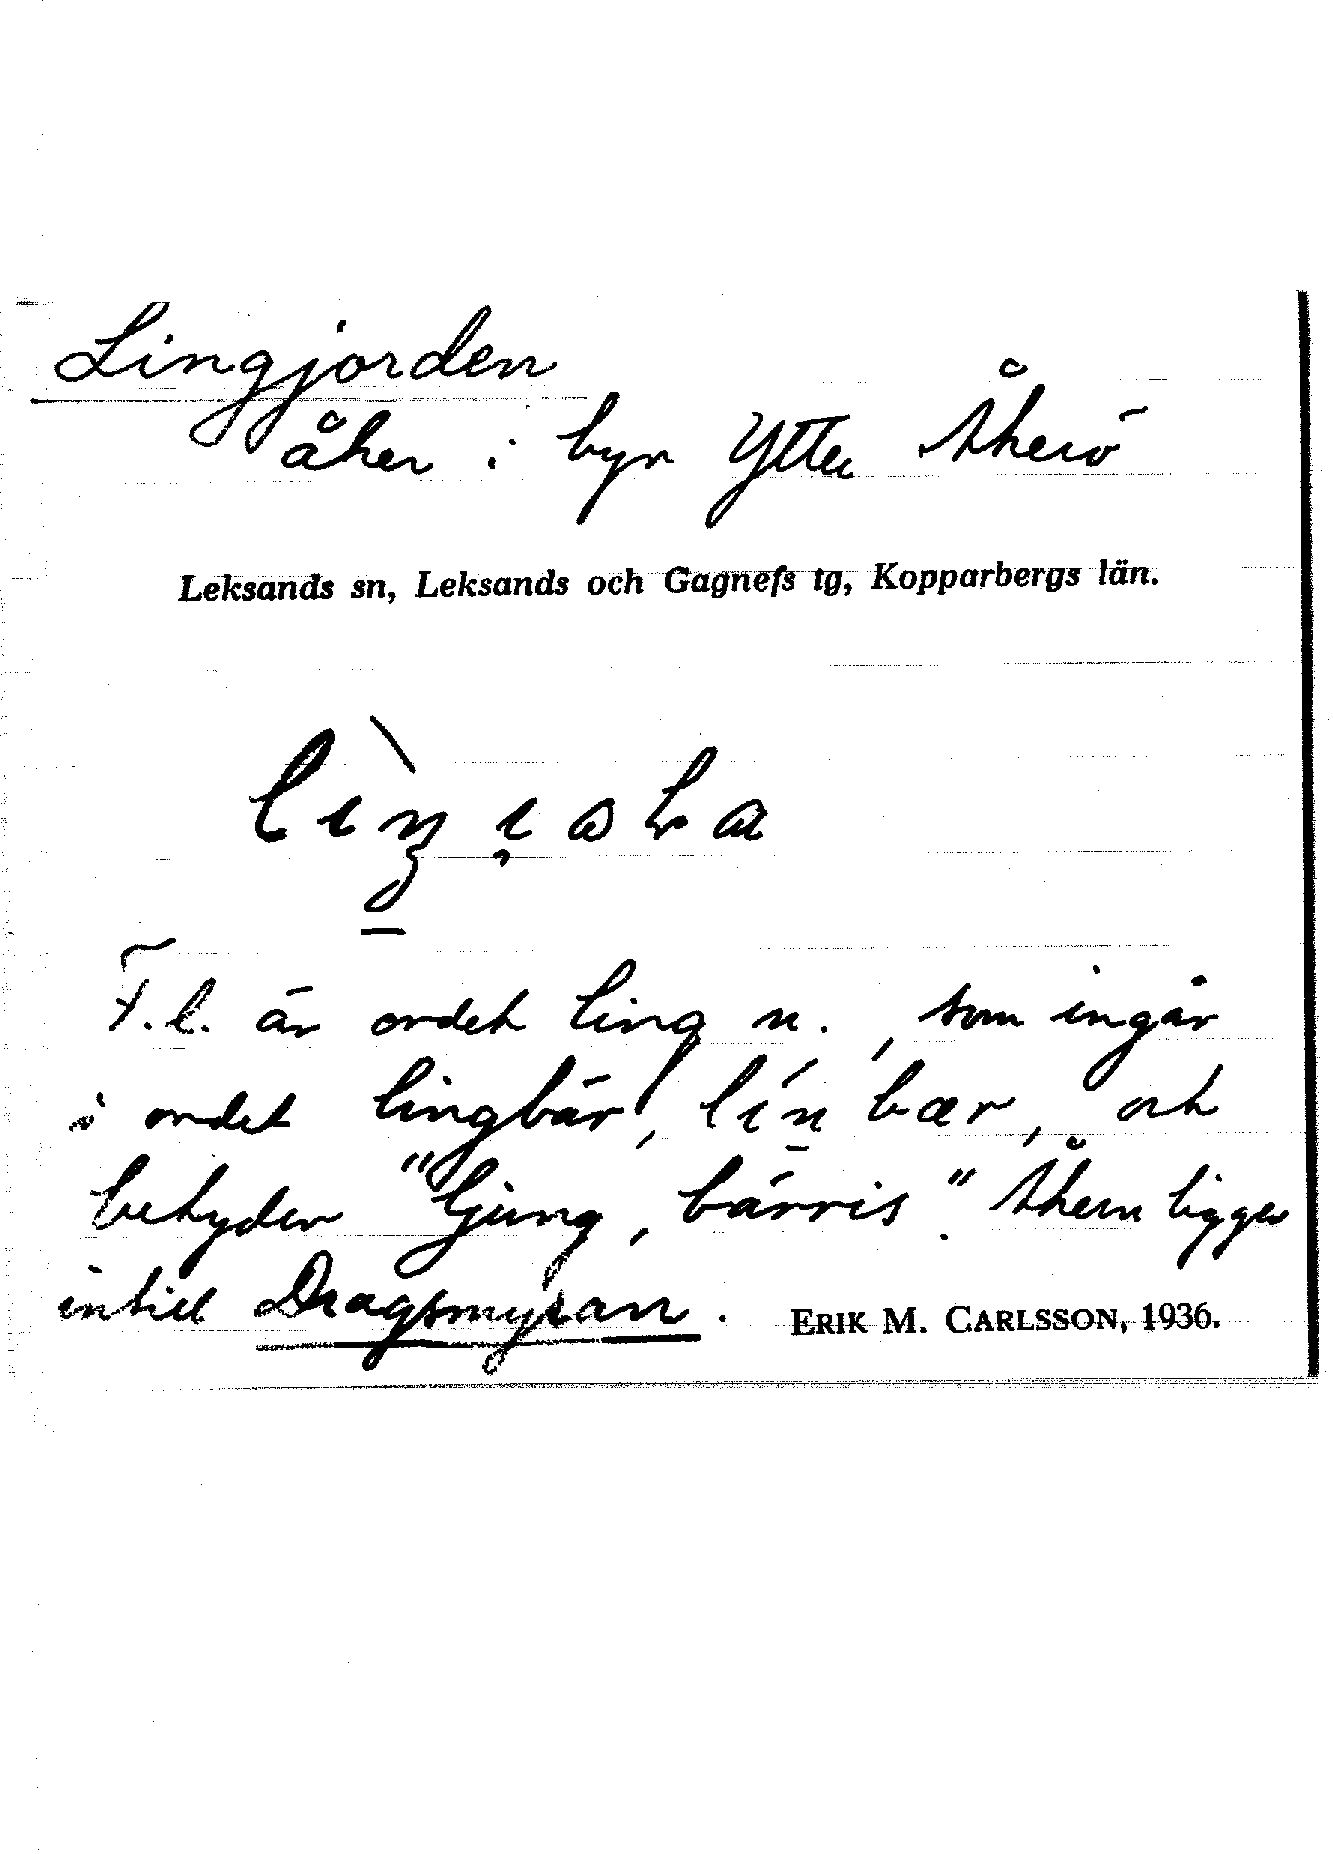 Lingjorden
åker i byn Ytter Åkerö
Leksands sn, Leksands och Gagnefs tg, Kopparbergs län.
F.l. är ordet ling n., som ingår
i ordet lingbär, och
betyder "ljung, bärris". Åkern ligger
intill Dragsmyran. ERIK M. CARLSSON, 1936.